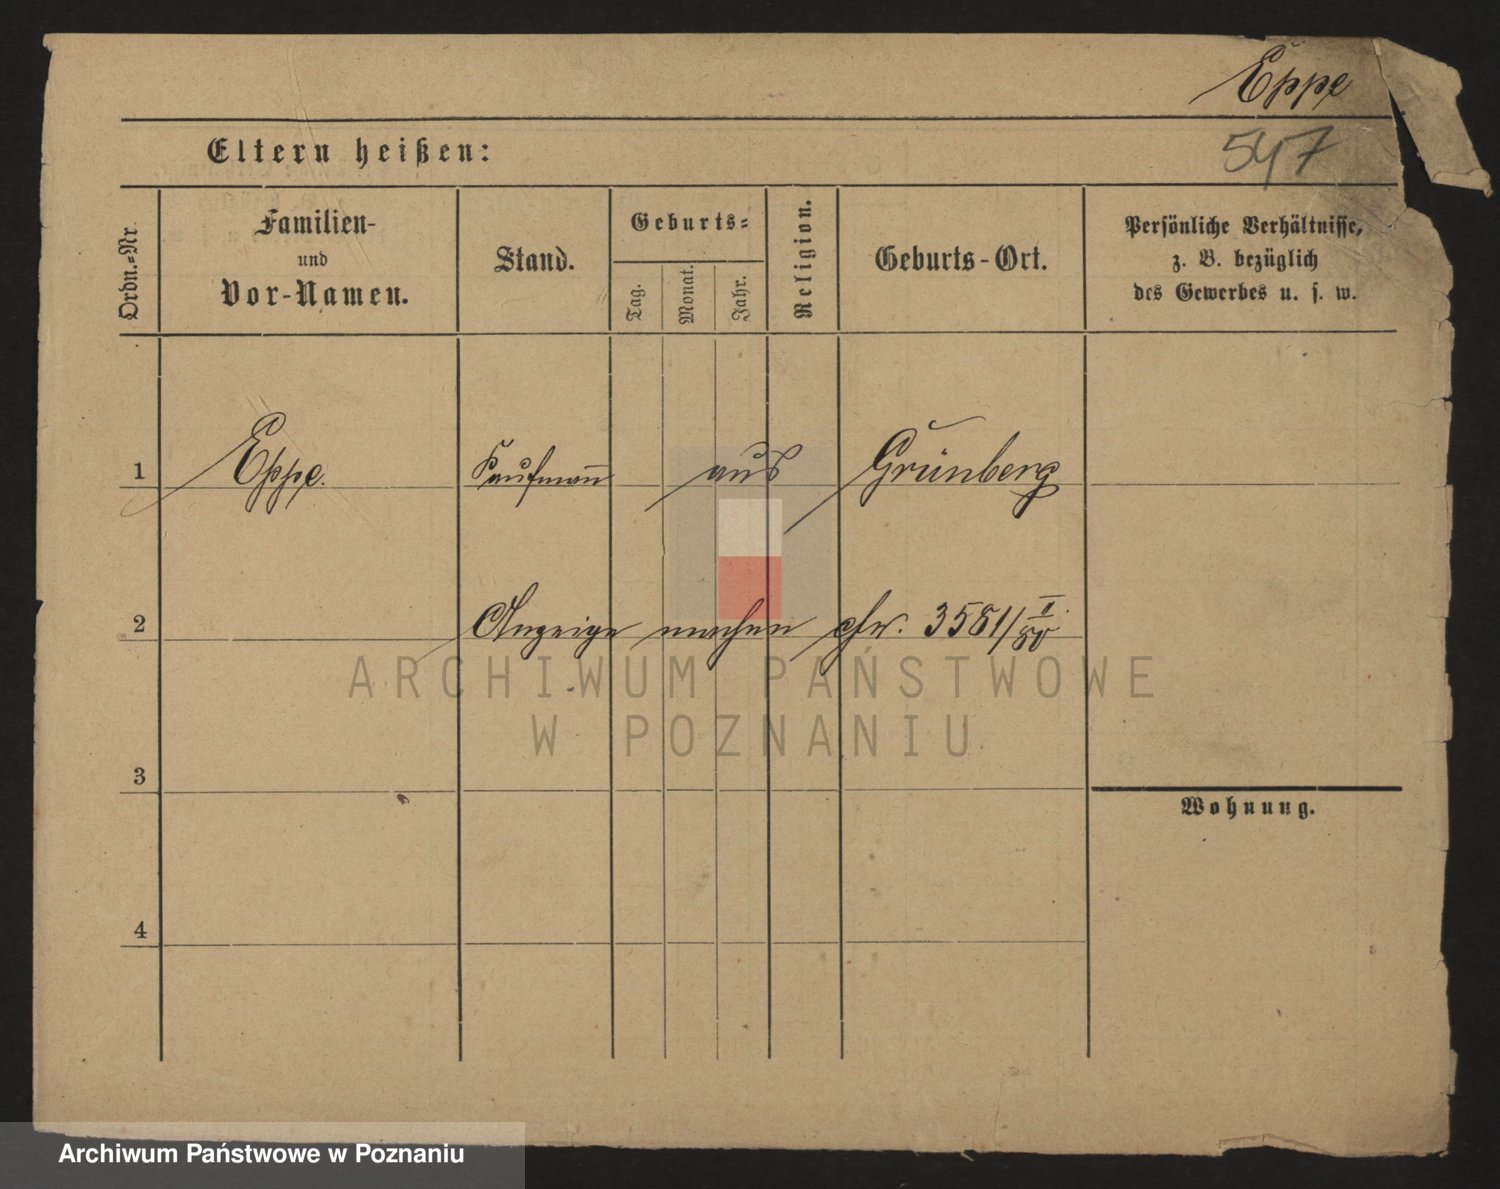 Eppe
547
Eltern heißen:
Ordn.-Nr.
Familien-
und
Vor-Namen.
Stand.
Geburts-
Tag.
Monat.
Jahr.
Religion.
Geburts-Ort.
Persönliche Verhältnisse,
z. B. bezüglich
des Gewerbes u. s. w.
1 Eppe. Kaufmann aus Grünberg
2 Anzeige machen cfr. 3581/II.
80
ARCHIWUM PAŃSTWOWE
W POZNANIU
3
Wohnung.
4
Archiwum Państwowe w Poznaniu